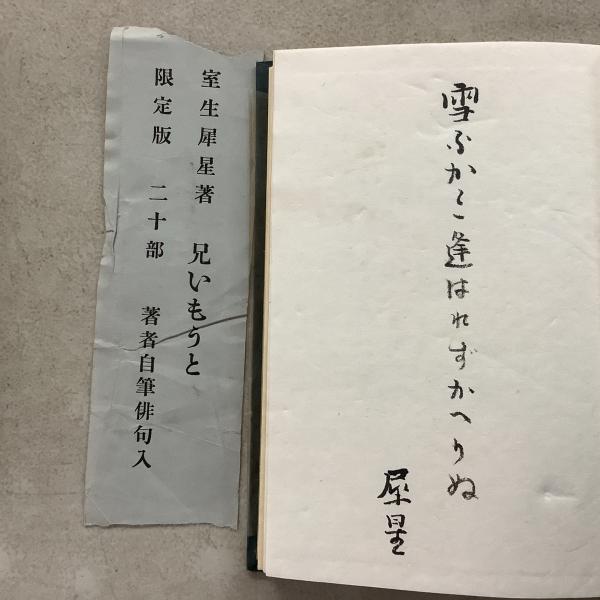 雪ふかく逢はれずかへりぬ
犀星
室生犀星著 兄いもうと
限定版 二十部 著者自筆俳句入